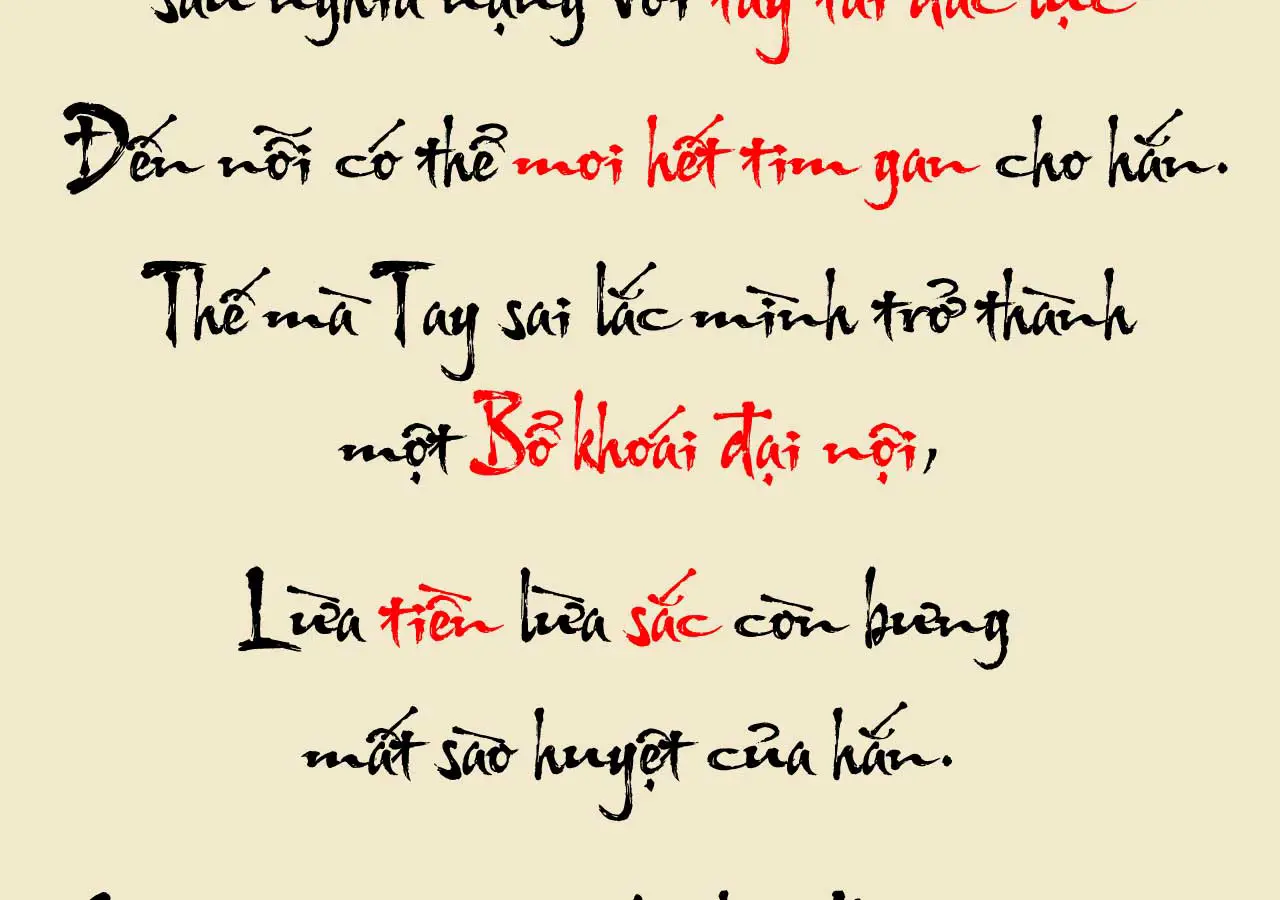 sâu nghĩa nặng với tay tài đắc lực
Đến nỗi có thể moi hết tim gan cho hắn.
Thế mà Tay sai lắc mình trở thành
một Bổ khoái đại nội,
Lừa tiền lừa sắc còn bưng
mất sào huyệt của hắn.